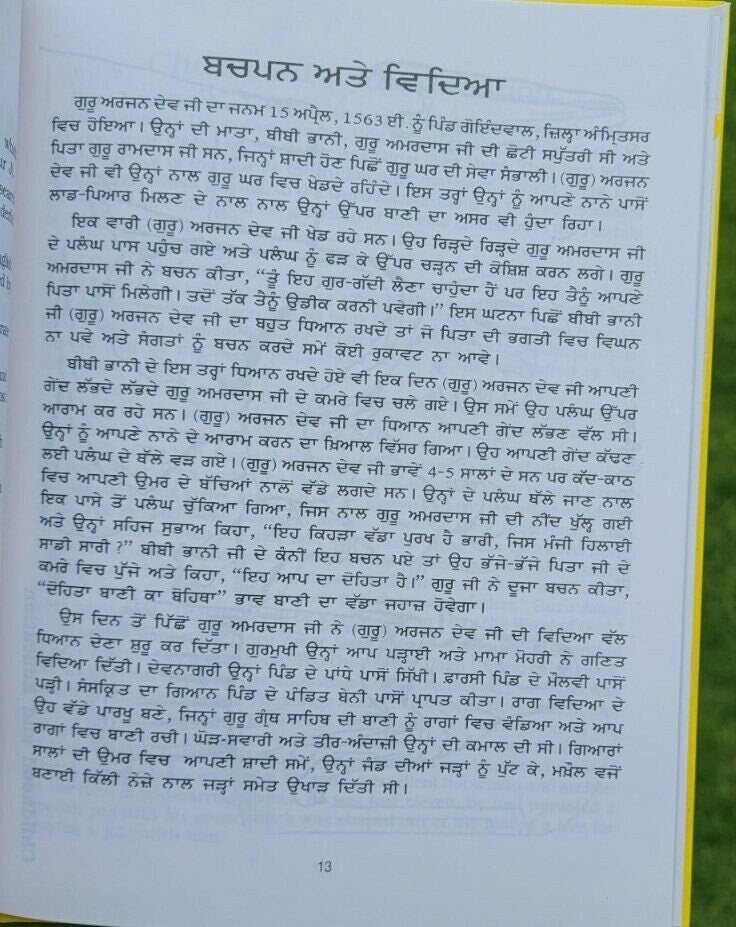 ਬਚਪਨ ਅਤੇ ਵਿਦਿਆ
ਗੁਰੂ ਅਰਜਨ ਦੇਵ ਜੀ ਦਾ ਜਨਮ 15 ਅਪ੍ਰੈਲ, 1563 ਈ. ਨੂੰ ਪਿੰਡ ਗੋਇੰਦਵਾਲ, ਜ਼ਿਲ੍ਹਾ ਅੰਮ੍ਰਿਤਸਰ
ਵਿਚ ਹੋਇਆ। ਉਨ੍ਹਾਂ ਦੀ ਮਾਤਾ, ਬੀਬੀ ਭਾਨੀ, ਗੁਰੂ ਅਮਰਦਾਸ ਜੀ ਦੀ ਛੋਟੀ ਸਪੁੱਤਰੀ ਸੀ ਅਤੇ
ਪਿਤਾ ਗੁਰੂ ਰਾਮਦਾਸ ਜੀ ਸਨ, ਜਿਨ੍ਹਾਂ ਸ਼ਾਦੀ ਹੋਣ ਪਿਛੋਂ ਗੁਰੂ ਘਰ ਦੀ ਸੇਵਾ ਸੰਭਾਲੀ। (ਗੁਰੂ) ਅਰਜਨ
ਦੇਵ ਜੀ ਵੀ ਉਨ੍ਹਾਂ ਨਾਲ ਗੁਰੂ ਘਰ ਵਿਚ ਖੇਡਦੇ ਰਹਿੰਦੇ। ਇਸ ਤਰ੍ਹਾਂ ਉਨ੍ਹਾਂ ਨੂੰ ਆਪਣੇ ਨਾਨੇ ਪਾਸੋਂ
ਲਾਡ-ਪਿਆਰ ਮਿਲਣ ਦੇ ਨਾਲ ਨਾਲ ਉਨ੍ਹਾਂ ਉੱਪਰ ਬਾਣੀ ਦਾ ਅਸਰ ਵੀ ਹੁੰਦਾ ਰਿਹਾ।
ਇਕ ਵਾਰੀ (ਗੁਰੂ) ਅਰਜਨ ਦੇਵ ਜੀ ਖੇਡ ਰਹੇ ਸਨ। ਉਹ ਰਿੜ੍ਹਦੇ ਰਿੜ੍ਹਦੇ ਗੁਰੂ ਅਮਰਦਾਸ ਜੀ
ਦੇ ਪਲੰਘ ਪਾਸ ਪਹੁੰਚ ਗਏ ਅਤੇ ਪਲੰਘ ਨੂੰ ਫੜ ਕੇ ਉੱਪਰ ਚੜ੍ਹਨ ਦੀ ਕੋਸ਼ਿਸ਼ ਕਰਨ ਲਗੇ। ਗੁਰੂ
ਅਮਰਦਾਸ ਜੀ ਨੇ ਬਚਨ ਕੀਤਾ, “ਤੂੰ ਇਹ ਗੁਰ-ਗੱਦੀ ਲੈਣਾ ਚਾਹੁੰਦਾ ਹੈਂ ਪਰ ਇਹ ਤੈਨੂੰ ਆਪਣੇ
ਪਿਤਾ ਪਾਸੋਂ ਮਿਲੇਗੀ। ਤਦੋਂ ਤੱਕ ਤੈਨੂੰ ਉਡੀਕ ਕਰਨੀ ਪਵੇਗੀ।” ਇਸ ਘਟਨਾ ਪਿਛੋਂ ਬੀਬੀ ਭਾਨੀ
ਜੀ (ਗੁਰੂ) ਅਰਜਨ ਦੇਵ ਜੀ ਦਾ ਬਹੁਤ ਧਿਆਨ ਰਖਦੇ ਤਾਂ ਜੋ ਪਿਤਾ ਦੀ ਭਗਤੀ ਵਿਚ ਵਿਘਨ
ਨਾ ਪਵੇ ਅਤੇ ਸੰਗਤਾਂ ਨੂੰ ਬਚਨ ਕਰਦੇ ਸਮੇਂ ਕੋਈ ਰੁਕਾਵਟ ਨਾ ਆਵੇ।
ਬੀਬੀ ਭਾਨੀ ਦੇ ਇਸ ਤਰ੍ਹਾਂ ਧਿਆਨ ਰਖਦੇ ਹੋਏ ਵੀ ਇਕ ਦਿਨ (ਗੁਰੂ) ਅਰਜਨ ਦੇਵ ਜੀ ਆਪਣੀ
ਗੇਂਦ ਲੱਭਦੇ ਲੱਭਦੇ ਗੁਰੂ ਅਮਰਦਾਸ ਜੀ ਦੇ ਕਮਰੇ ਵਿਚ ਚਲੇ ਗਏ। ਉਸ ਸਮੇਂ ਉਹ ਪਲੰਘ ਉੱਪਰ
ਆਰਾਮ ਕਰ ਰਹੇ ਸਨ। (ਗੁਰੂ) ਅਰਜਨ ਦੇਵ ਜੀ ਦਾ ਧਿਆਨ ਆਪਣੀ ਗੇਂਦ ਲੱਭਣ ਵੱਲ ਸੀ।
ਉਨ੍ਹਾਂ ਨੂੰ ਆਪਣੇ ਨਾਨੇ ਦੇ ਆਰਾਮ ਕਰਨ ਦਾ ਖ਼ਿਆਲ ਵਿੱਸਰ ਗਿਆ। ਉਹ ਆਪਣੀ ਗੇਂਦ ਕੱਢਣ
ਲਈ ਪਲੰਘ ਦੇ ਥੱਲੇ ਵੜ ਗਏ। (ਗੁਰੂ) ਅਰਜਨ ਦੇਵ ਜੀ ਭਾਵੇਂ 4-5 ਸਾਲਾਂ ਦੇ ਸਨ ਪਰ ਕੱਦ-ਕਾਠ
ਵਿਚ ਆਪਣੀ ਉਮਰ ਦੇ ਬੱਚਿਆਂ ਨਾਲੋਂ ਵੱਡੇ ਲਗਦੇ ਸਨ। ਉਨ੍ਹਾਂ ਦੇ ਪਲੰਘ ਥੱਲੇ ਜਾਣ ਨਾਲ
ਇਕ ਪਾਸੇ ਤੋਂ ਪਲੰਘ ਚੁੱਕਿਆ ਗਿਆ, ਜਿਸ ਨਾਲ ਗੁਰੂ ਅਮਰਦਾਸ ਜੀ ਦੀ ਨੀਂਦ ਖੁੱਲ੍ਹ ਗਈ
ਅਤੇ ਉਨ੍ਹਾਂ ਸਹਿਜ ਸੁਭਾਅ ਕਿਹਾ, “ਇਹ ਕਿਹੜਾ ਵੱਡਾ ਪੁਰਖ ਹੈ ਭਾਰੀ, ਜਿਸ ਮੰਜੀ ਹਿਲਾਈ
ਸਾਡੀ ਸਾਰੀ ?” ਬੀਬੀ ਭਾਨੀ ਜੀ ਦੇ ਕੰਨੀਂ ਇਹ ਬਚਨ ਪਏ ਤਾਂ ਉਹ ਭੱਜੇ-ਭੱਜੇ ਪਿਤਾ ਜੀ ਦੇ
ਕਮਰੇ ਵਿਚ ਪੁੱਜੇ ਅਤੇ ਕਿਹਾ, “ਇਹ ਆਪ ਦਾ ਦੋਹਿਤਾ ਹੈ।” ਗੁਰੂ ਜੀ ਨੇ ਦੂਜਾ ਬਚਨ ਕੀਤਾ,
“ਦੋਹਿਤਾ ਬਾਣੀ ਕਾ ਬੋਹਿਥਾ” ਭਾਵ ਬਾਣੀ ਦਾ ਵੱਡਾ ਜਹਾਜ਼ ਹੋਵੇਗਾ।
ਉਸ ਦਿਨ ਤੋਂ ਪਿੱਛੋਂ ਗੁਰੂ ਅਮਰਦਾਸ ਜੀ ਨੇ (ਗੁਰੂ) ਅਰਜਨ ਦੇਵ ਜੀ ਦੀ ਵਿਦਿਆ ਵੱਲ
ਧਿਆਨ ਦੇਣਾ ਸ਼ੁਰੂ ਕਰ ਦਿੱਤਾ। ਗੁਰਮੁਖੀ ਉਨ੍ਹਾਂ ਆਪ ਪੜ੍ਹਾਈ ਅਤੇ ਮਾਮਾ ਮੋਹਰੀ ਨੇ ਗਣਿਤ
ਵਿਦਿਆ ਦਿੱਤੀ। ਦੇਵਨਾਗਰੀ ਉਨ੍ਹਾਂ ਪਿੰਡ ਦੇ ਪਾਂਧੇ ਪਾਸੋਂ ਸਿੱਖੀ। ਫ਼ਾਰਸੀ ਪਿੰਡ ਦੇ ਮੌਲਵੀ ਪਾਸੋਂ
ਪੜ੍ਹੀ। ਸੰਸਕ੍ਰਿਤ ਦਾ ਗਿਆਨ ਪਿੰਡ ਦੇ ਪੰਡਿਤ ਬੇਨੀ ਪਾਸੋਂ ਪ੍ਰਾਪਤ ਕੀਤਾ। ਰਾਗ ਵਿਦਿਆ ਦੇ
ਉਹ ਵੱਡੇ ਪਾਰਖੂ ਬਣੇ, ਜਿਨ੍ਹਾਂ ਗੁਰੂ ਗ੍ਰੰਥ ਸਾਹਿਬ ਦੀ ਬਾਣੀ ਨੂੰ ਰਾਗਾਂ ਵਿਚ ਵੰਡਿਆ ਅਤੇ ਆਪ
ਰਾਗਾਂ ਵਿਚ ਬਾਣੀ ਰਚੀ। ਘੋੜ-ਸਵਾਰੀ ਅਤੇ ਤੀਰ-ਅੰਦਾਜ਼ੀ ਉਨ੍ਹਾਂ ਦੀ ਕਮਾਲ ਦੀ ਸੀ। ਗਿਆਰਾਂ
ਸਾਲਾਂ ਦੀ ਉਮਰ ਵਿਚ ਆਪਣੀ ਸ਼ਾਦੀ ਸਮੇਂ, ਉਨ੍ਹਾਂ ਜੰਡ ਦੀਆਂ ਜੜ੍ਹਾਂ ਨੂੰ ਪੁੱਟ ਕੇ, ਮਖ਼ੌਲ ਵਜੋਂ
ਬਣਾਈ ਕਿੱਲੀ ਨੇਜ਼ੇ ਨਾਲ ਜੜ੍ਹਾਂ ਸਮੇਤ ਉਖਾੜ ਦਿੱਤੀ ਸੀ।
13